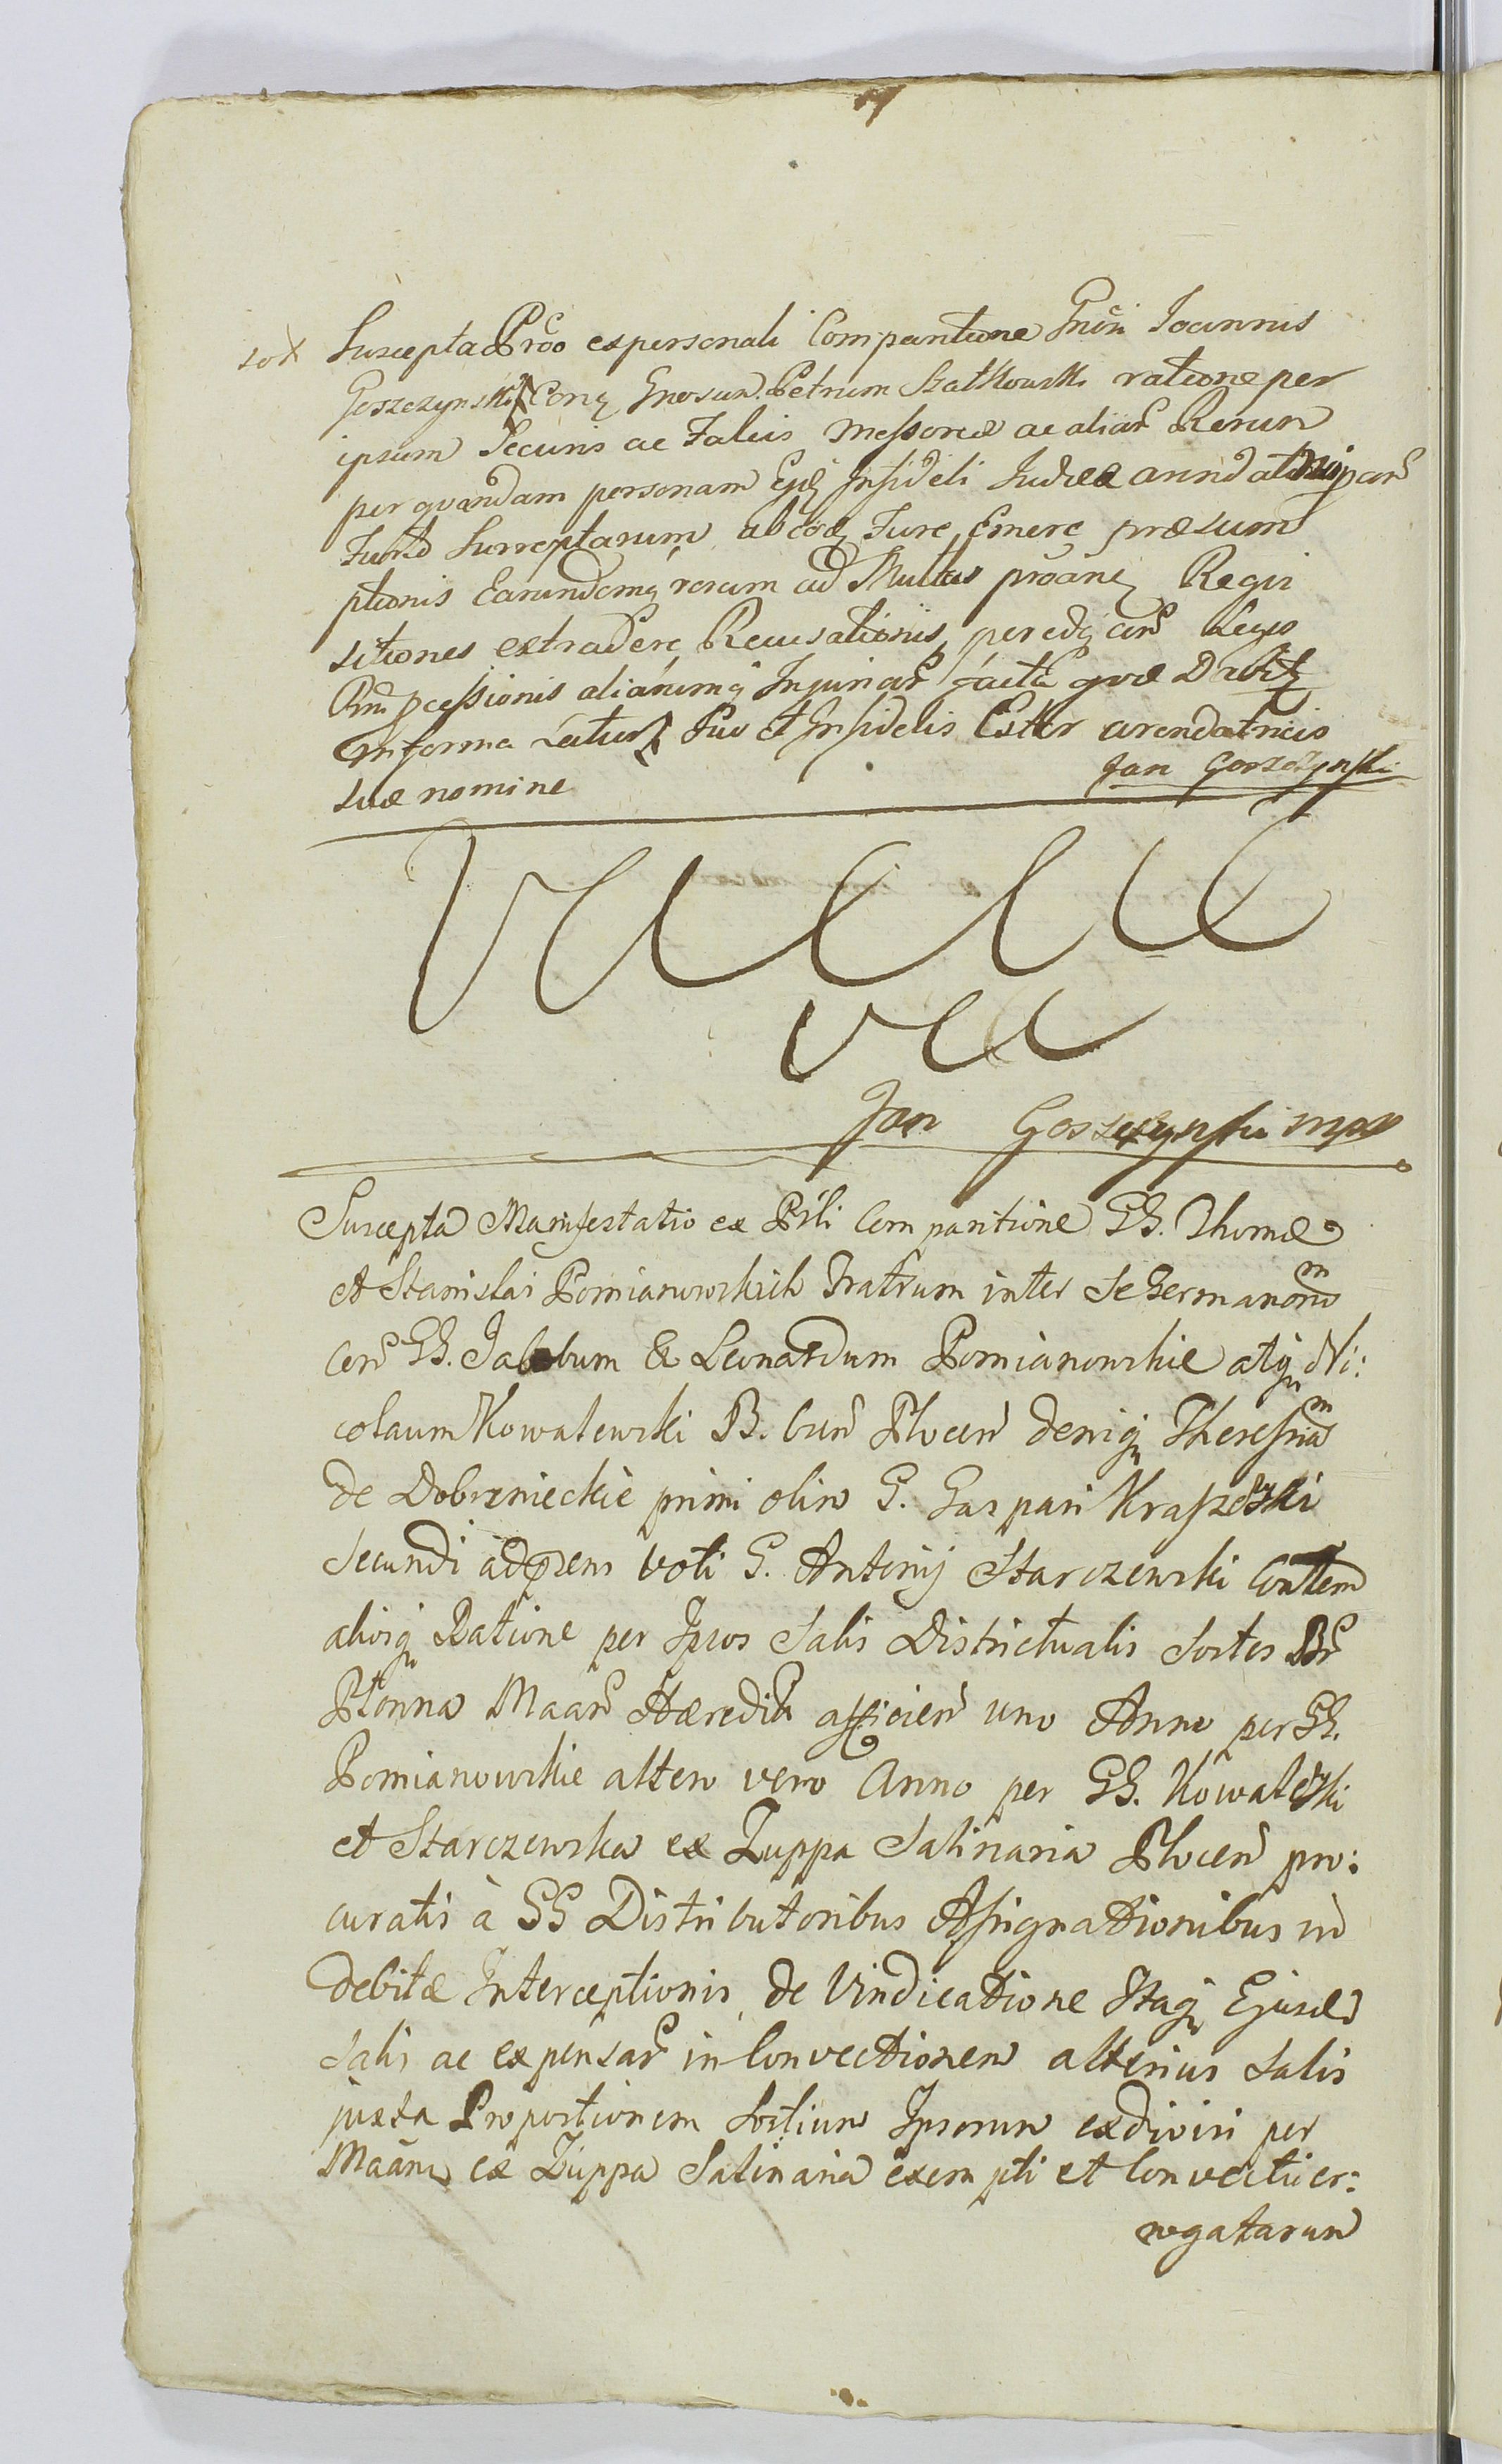 sox Suscepta Prõo ex personali Comparitione Gnõsi Joannis
Goszczynski Conq Gnosum Petrum Szatkowski ratione per
ipsum Securis ac Falcis Messoreæ ac aliar Rerum
per quandam personam Ejq Infideli Judææ
Furto Surreptarum ab eoq Fure Emere præsum
ptionis Earundemq rerum ad Multas Reqvi
sitiones extradere Recusationis per
aliarumq Injuriar facta
in forma Latior Suo et Infidelis Ester arendatricis
suæ nomine Jan Goszczynski
Vacat
Jan Goszczynski mpp
Suscepta Manifestatio ex Prsli Comparitione GG. Thomæ
et Stanislai Pomianowskich Fratrum inter Se Germanorum
Con GG. Jakobum & Leonardum Pomianowskie atq Ni:
colaum Kowalewski B. Cun Plocen deniq Theressiam
de Dobrznieckie primi olim G. Gaspari Kraszewski
Secundi ad præsens voti G. Antonij Starczewski Contem
aliosq Ratione per Ipsos Salis Districtualis Sortes Br
Plonna Maar Hæredit afficien uno Anno per GG.
Pomianowskie altero vero Anno per GG. Kowalewski
et Starczewska ex Zuppa Salinaria Plocen pro:
curatis à GG Distributoribus Assignationibus in
debitæ Interceptionis de Vindicatione Itaq Ejusd
Salis ac expensar in Convectionem alterius Salis
juxta Proportionem Sortium Ipsorum exdivisi per
Maãm ex Zuppa Salinaria exempti et Convecti er:
rogatarum